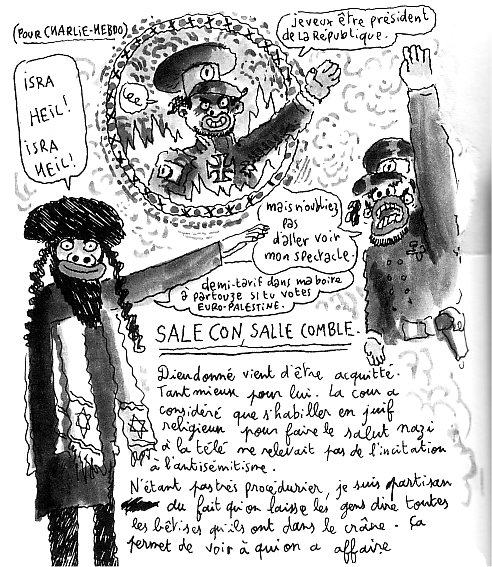 (POUR CHARLIE-HEBDO)
je veux être président
de la République.
ISRA
HEIL!
ISRA
HEIL!
mais n'oubliez
pas
d'aller voir
mon spectacle.
demi-tarif dans ma boire
à partouze si tu votes
EURO-PALESTINE.
SALE CON, SALLE COMBLE.
Dieudonné vient d'être acquitté.
Tant mieux pour lui. La cour a
considéré que s'habiller en juif
religieux pour faire le salut nazi
à la télé ne relevait pas de l'incitation
à l'antisémitisme.
N'étant pas très procédurier, je suis partisan
du fait qu'on laisse les gens dire toutes
les bêtises qu'ils ont dans le crâne. ça
permet de voir à qui on a affaire